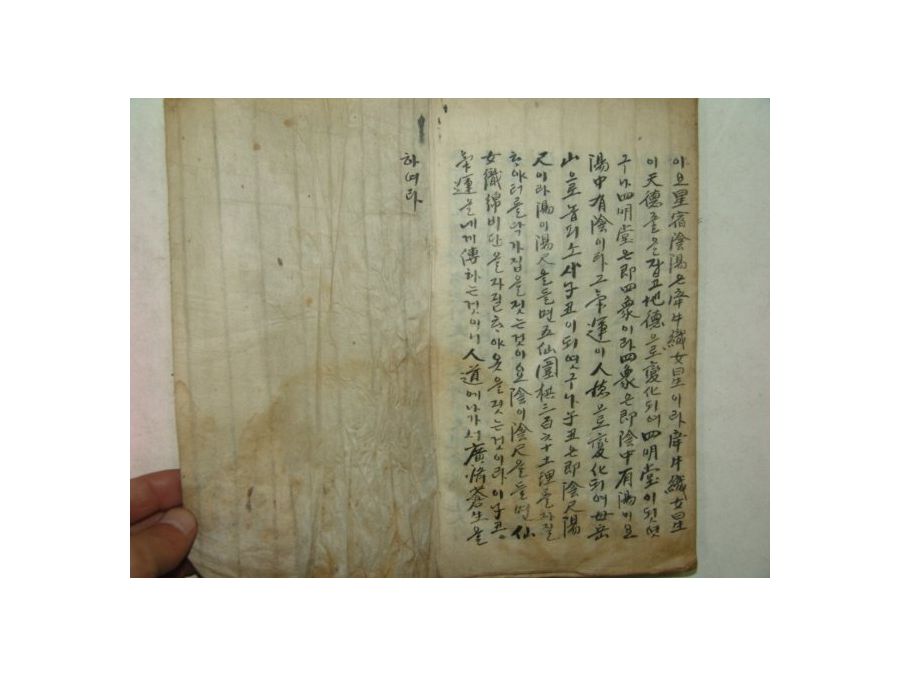 이요星宿陰陽은牽牛織女星이라牽牛織女星
이天德줄을잡고地德으로變化되여四明堂이되엿
구나四明堂은即四象이라四象은即陰中有陽이요
陽中有陰이라그氣運이人德으로變化되여母岳
山으로놉피소사子丑이되엿구나子丑은即陰尺陽
尺이라陽이陽尺을들면五仙圍棋三百六十土理를자질
하야터를닥가집을짓는것이요陰이陰尺을들면仙
女織綿비단을자질하야옷을짓는것이라이子丑
氣運을네게傳하는것이니人道에나가서廣濟蒼生을
하여라